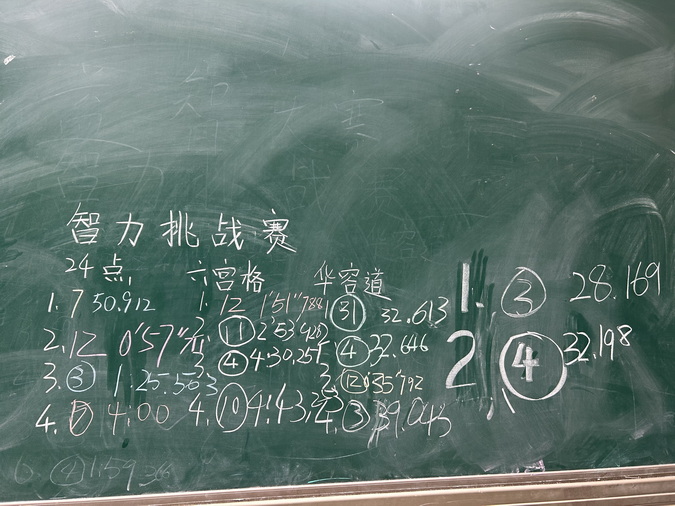 智力挑战赛
24点
1. 7 50.912
2. 12 0'57"
3. ③ 1.25.563
4. 4.00
六宫格
1. 12 1'51"788
⑪ 2'53"
3 ④ 4.30.251
4. ⑩ 4.43.
华容道
1 ㉛ 32.613
④ 32.646
3. ⑫ 35"792
4. ③ 39.043
1. ③ 28.169
2 ④ 32.198